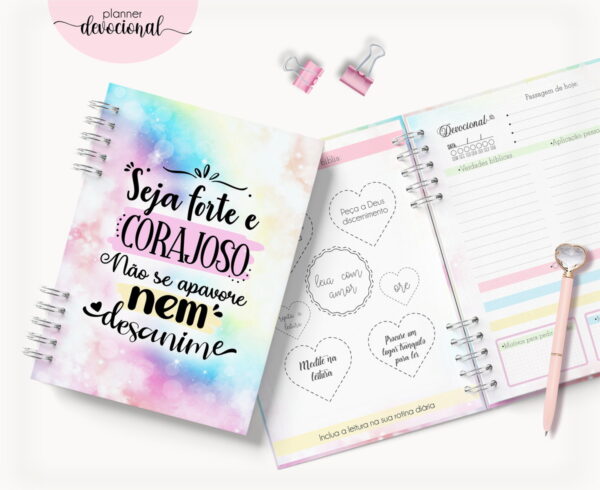 planner
devocional
Seja forte e
CORAJOSO
Não se apavore
nem
desanime
Bíblia
Peça a Deus
discernimento
leia com
amor
ore
Medite na
leitura
Procure um
lugar tranquilo
para ler
Inclua a leitura na sua rotina diária
Devocional
DATA
Passagem de hoje:
•Verdades bíblicas
•Aplicação
•Motivos para